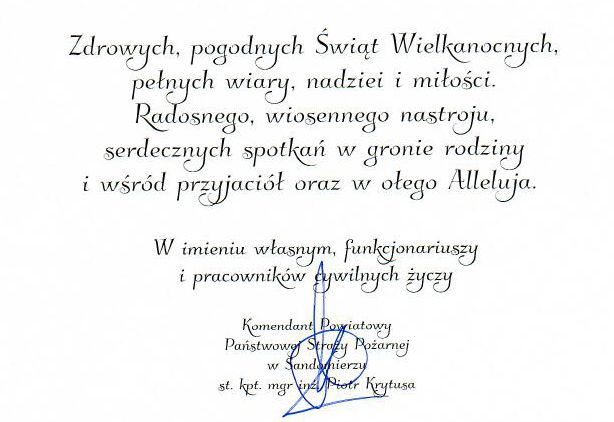 Zdrowych, pogodnych Świąt Wielkanocnych,
pełnych wiary, nadziei i miłości.
Radosnego, wiosennego nastroju,
serdecznych spotkań w gronie rodziny
i wśród przyjaciół oraz w ołego Alleluja.
W imieniu własnym, funkcjonariuszy
i pracowników cywilnych życzy
Komendant Powiatowy
Państwowej Straży Pożarnej
w Sandomierzu
st. kpt. mgr inż. Piotr Krytusa